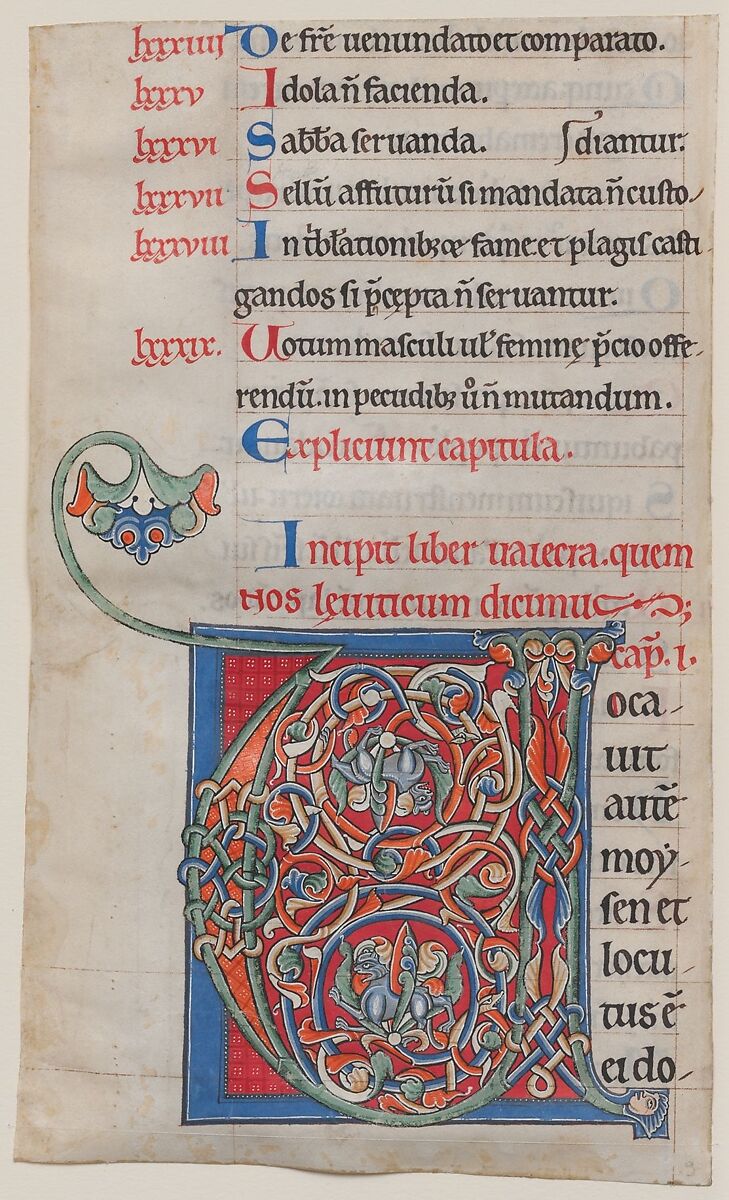 lxxxiiii De fr̄e uenundato et comparato.
lxxxv Idola n̄ facienda.
lxxxvi Sabb̄a seruanda. diantur.
lxxxvii Bellū affuturū si mandata n̄ custo-
lxxxviii In t̄blationibꝫ fame et plagis casti
gandos si p̄cepta n̄ seruantur.
lxxxix. Uotum masculi ul̄ feminę p̄cio offe-
rendū. in pecudibꝫ ů n̄ mutandum.
Expliciunt capitula.
Incipit liber uaiecra. quem
nos leuiticum dicimus;
cap̄. i.
oca-
uit
autē
moy-
sen et
locu-
tus ē
ei do-